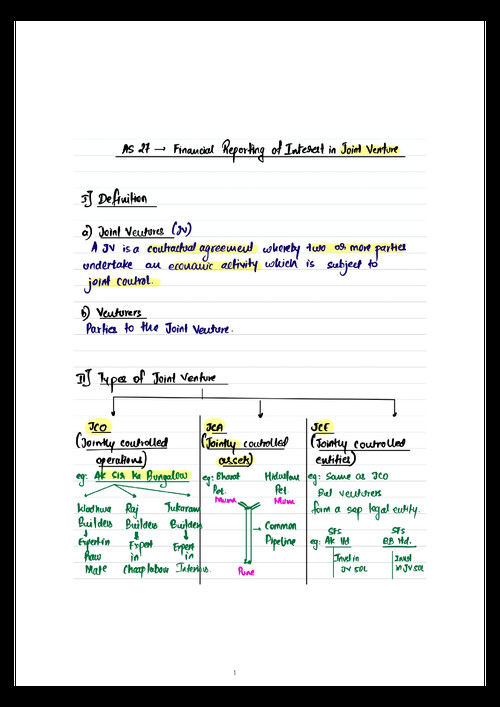 AS 27 → Financial Reporting of Interest in Joint Venture
I] Definition
a) Joint Ventures (JV)
A JV is a contractual agreement whereby two or more parties
undertake an economic activity which is subject to
joint control.
b) Venturers
Parties to the Joint Venture.
II] Types of Joint Venture
JCO
(Jointly controlled
operations)
eg: Ak Sir Ka Bungalow
Wadhwa Raj Tukaram
Builders Builders Builders
Expert in Expert Expert
Raw in in
Mate Cheap labour Interiors.
JCA
(Jointly controlled
assets)
eg: Bharat Hindustan
Pet. Pet.
Mum Mum
→ Common
Pipeline
Pune
JCE
(Jointly controlled
entities)
eg: Same as JCO
But venturers
form a sep legal entity.
SFS SFS
eg: AK ltd BB ltd.
Invst in Invst
JV 50L in JV 50L
1